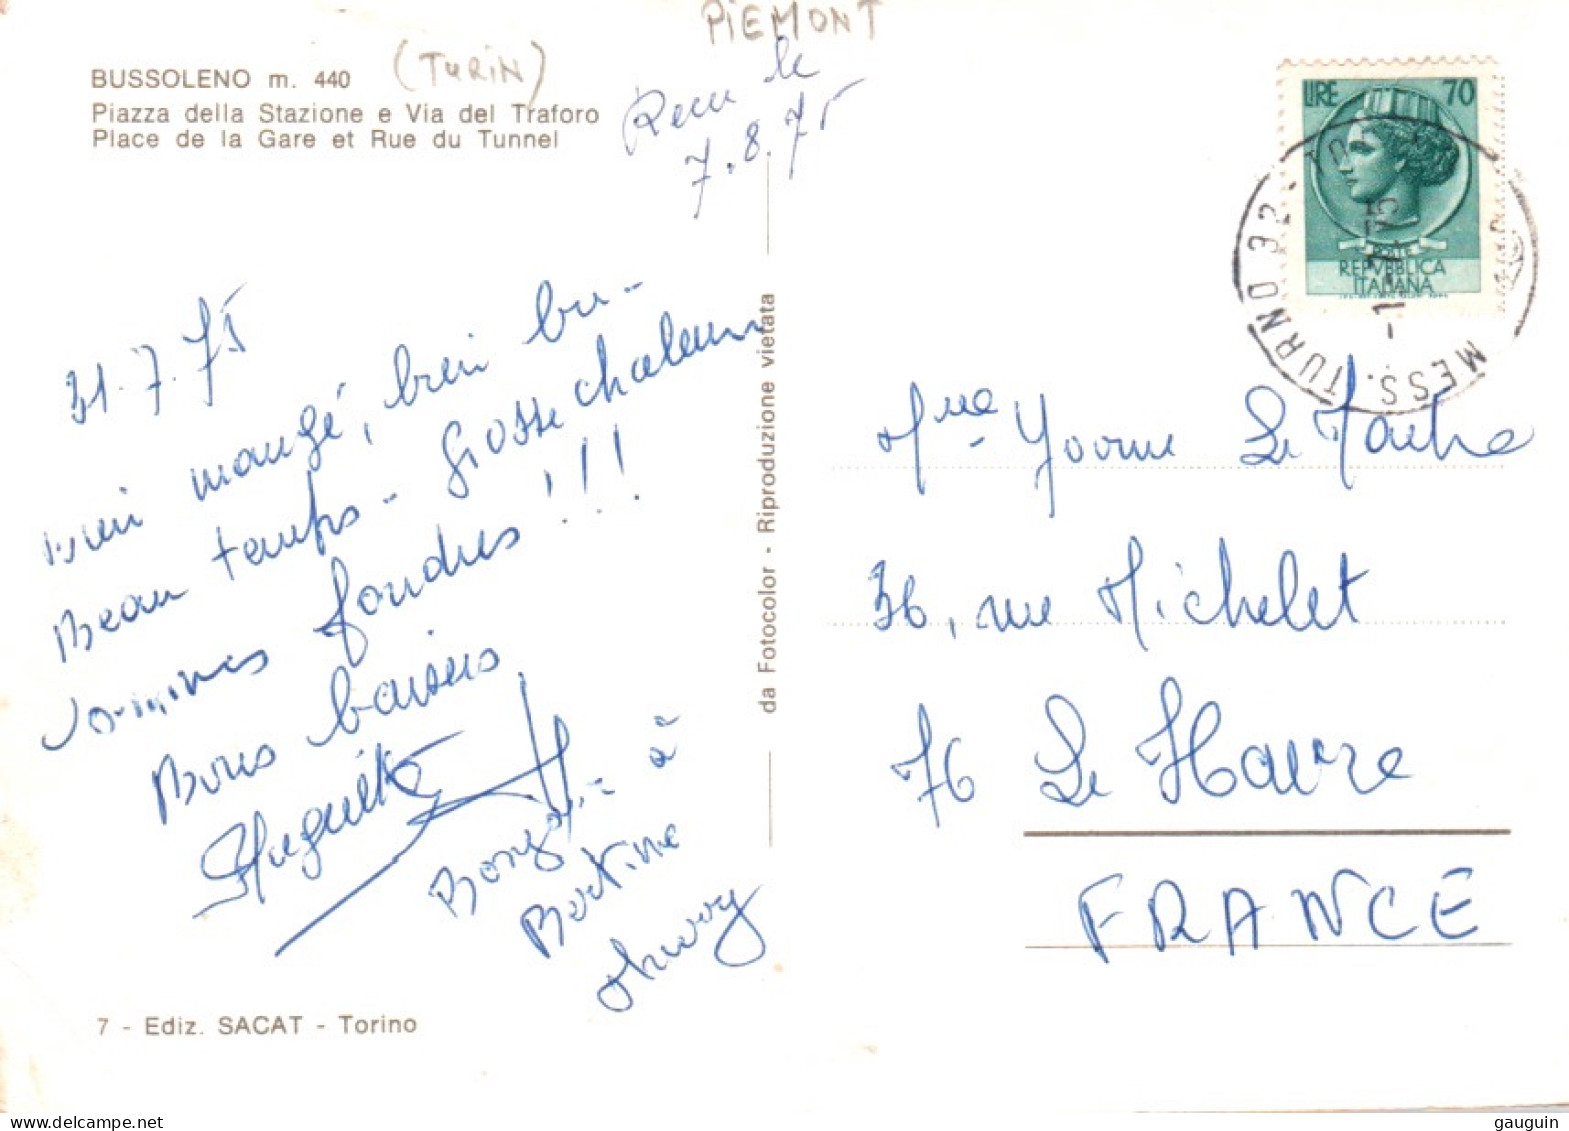 PIEMONT
BUSSOLENO m. 440 (TURIN)
Piazza della Stazione e Via del Traforo
Place de la Gare et Rue du Tunnel
Recu le
7.8.75
LIRE 70
POSTE
REPVBBLICA
ITALIANA
MESS. TURNO 32
31.7.75
Bien mangé, bien bu -
Beau temps - Grosse chaleur
Sommes fondues !!!
Bons baisers
Huguette
Bonjour à
Martine
da Fotocolor - Riproduzione vietata
Mme Yvonne Le
36, rue Michelet
76 Le Havre
FRANCE
7 - Ediz. SACAT - Torino
delcampe.net
gauguin